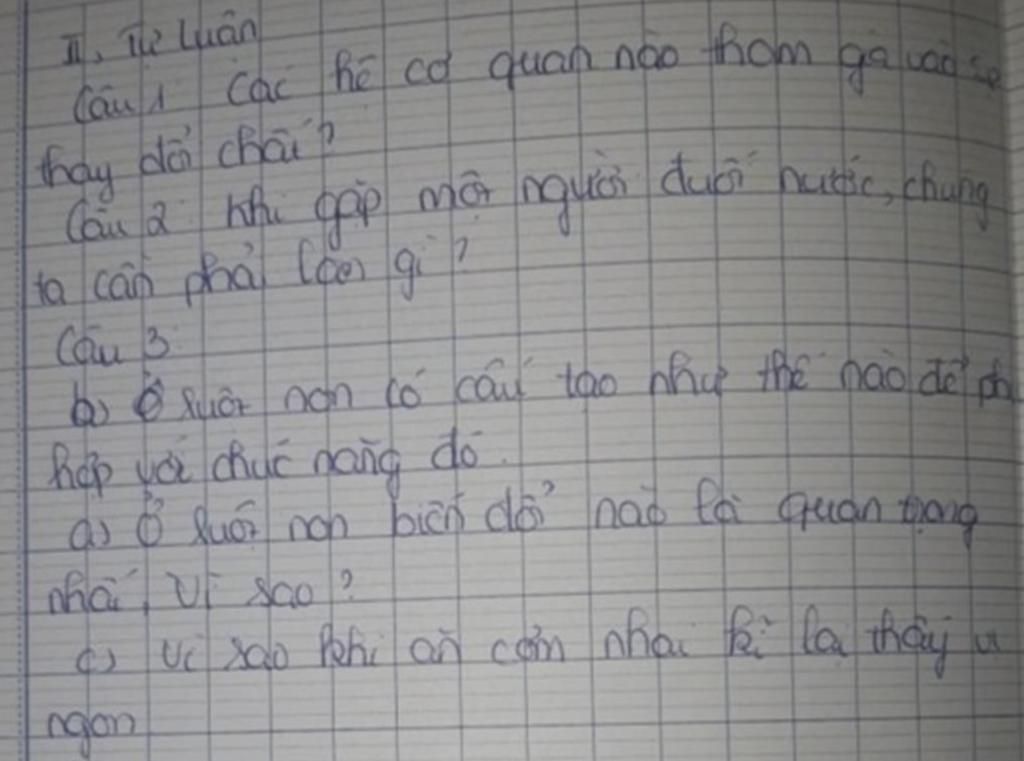 II. Tự luận
Câu 1 Các hệ cơ quan nào tham gia vào sự
thay đổi chất?
Câu 2: Khi gặp một người đuối nước, chúng
ta cần phải làm gì?
Câu 3:
b) Ở ruột non có cấu tạo như thế nào để ph
hợp với chức năng đó.
a) Ở ruột non biến đổi nào là quan trọng
nhất, Vì sao?
c) Vì sao khi ăn cơm nhai kĩ lại thấy
ngon